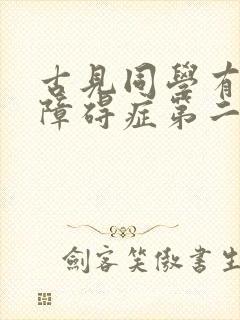 古見同學有
障碍症第二
劍客笑傲書生